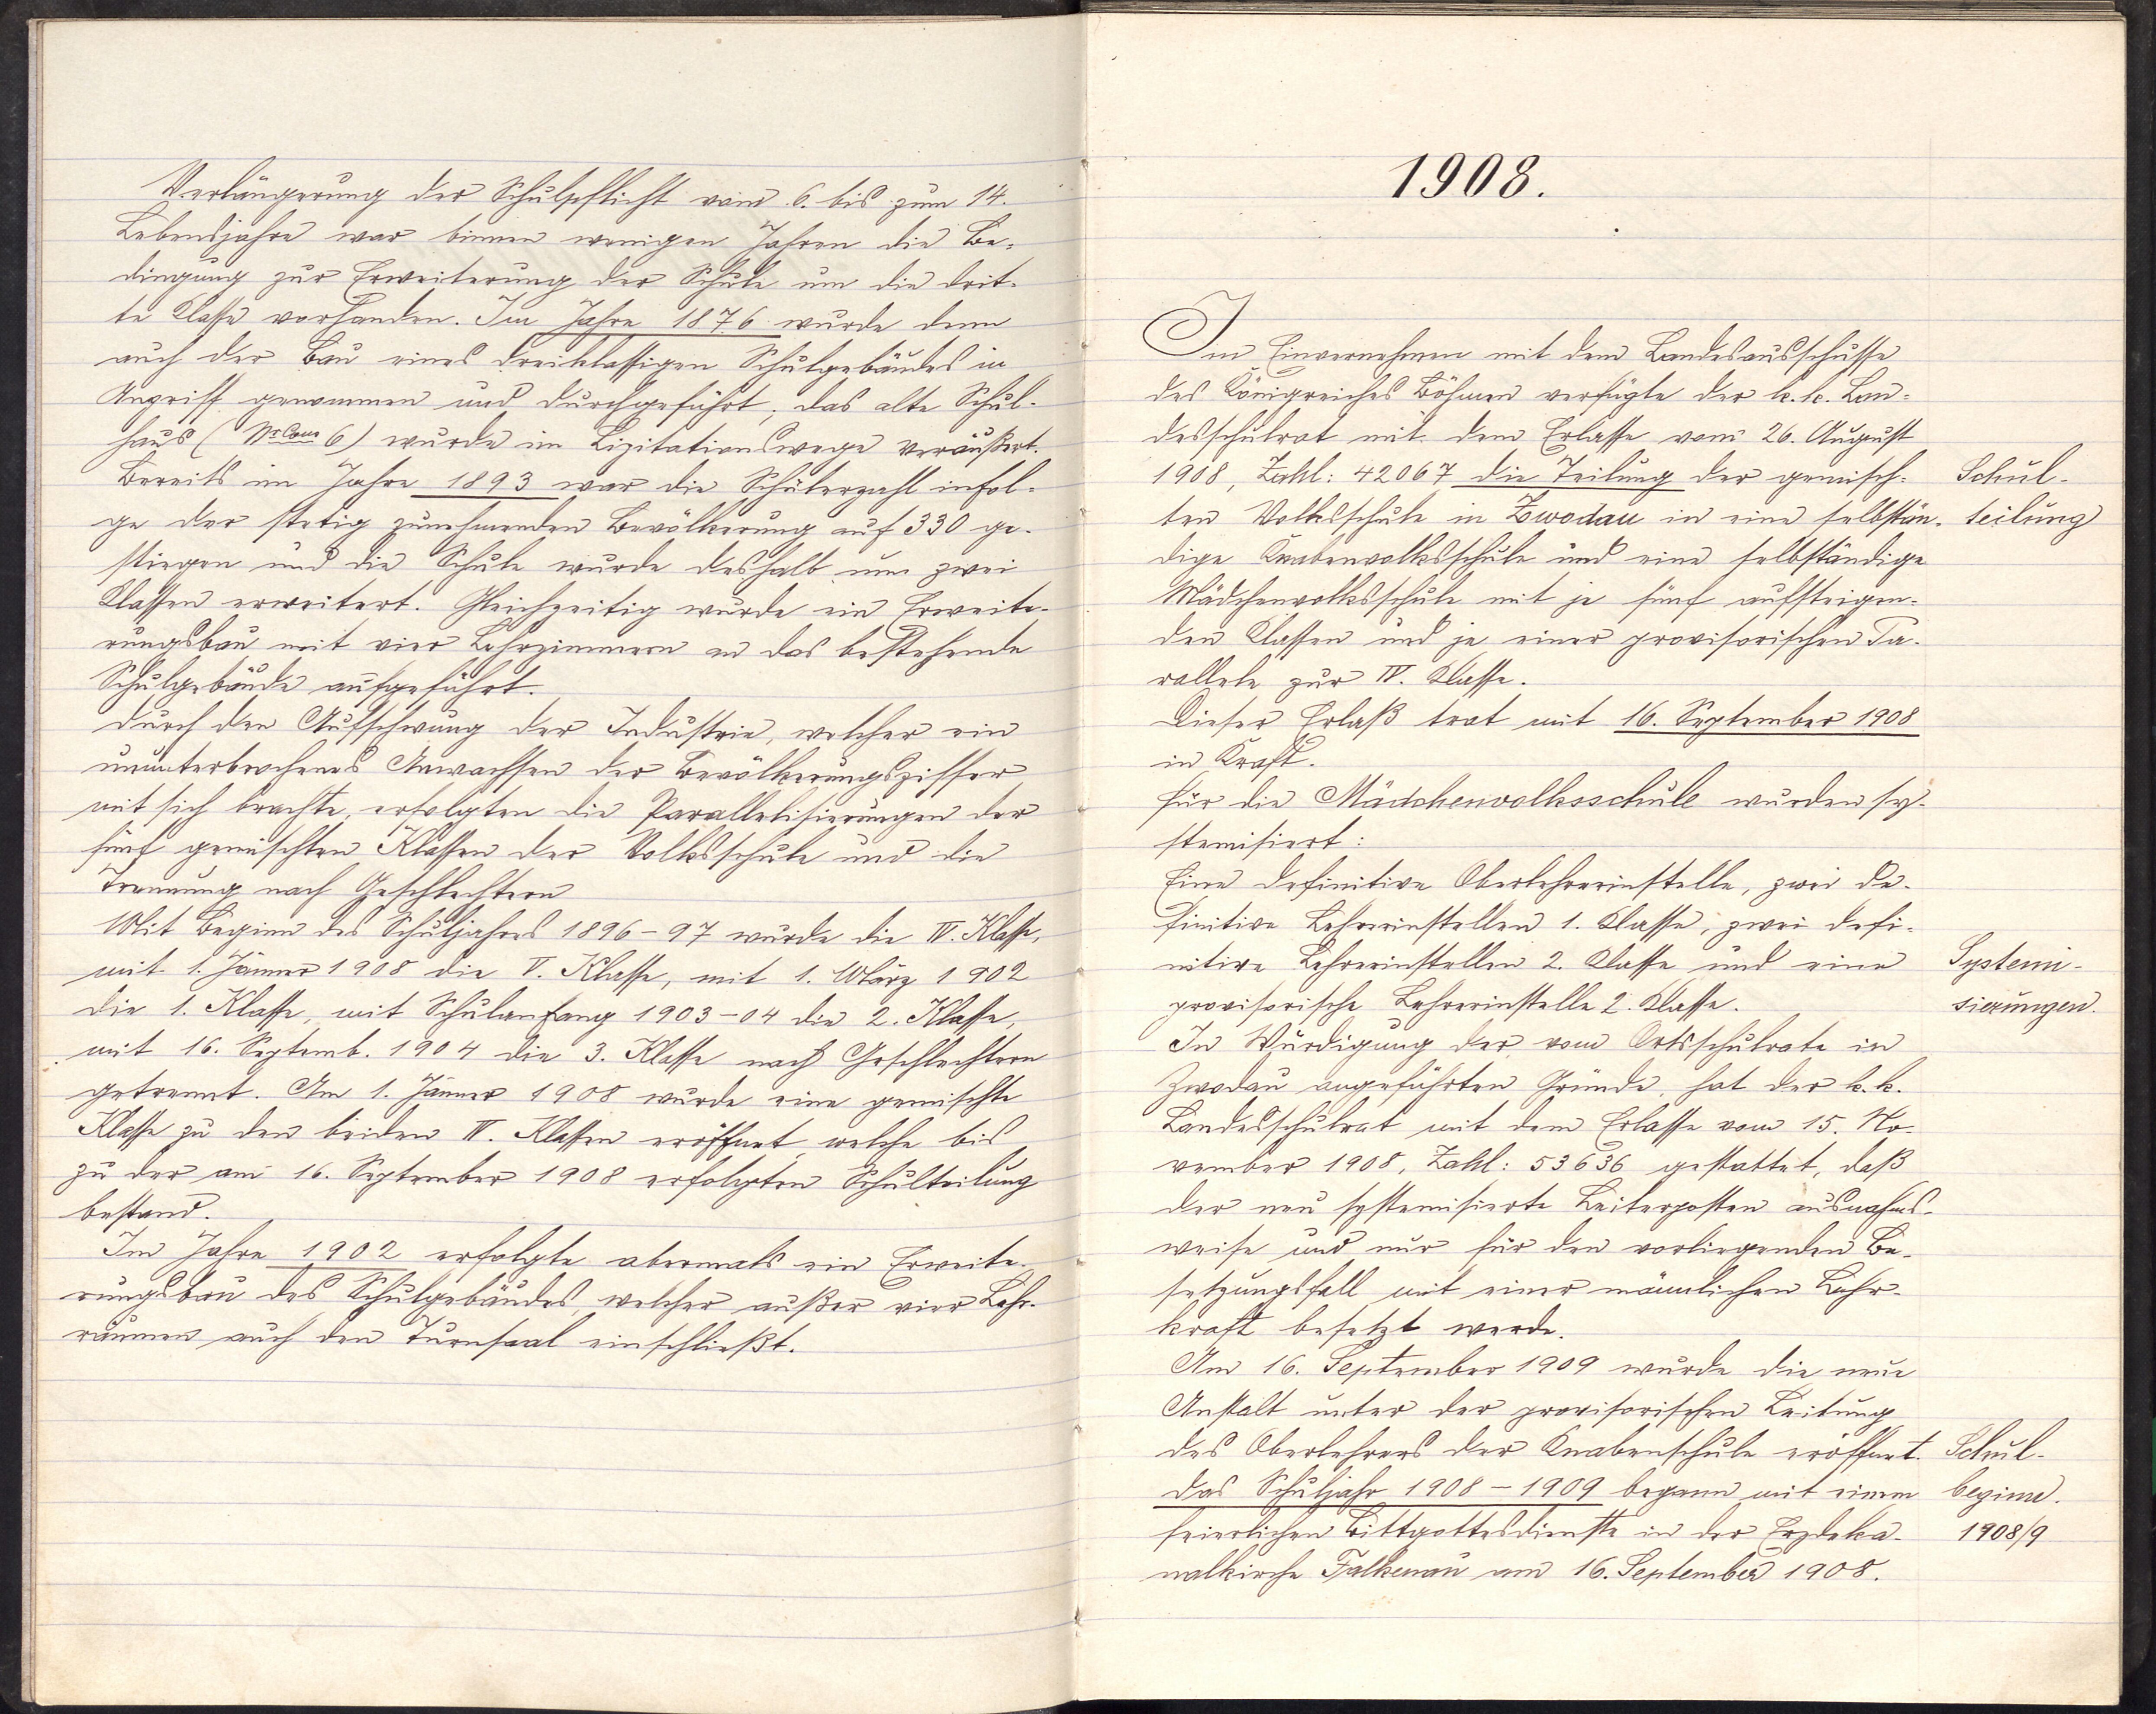 Verlängerung der Schulpflicht vom 6. bis zum 14.
Lebensjahre war binnen wenigen Jahren die Be-
dingung zur Erweiterung der Schule um die drit-
te Classe vorhanden. Im Jahre 1876 wurde denn
auch der Bau eines dreiklassigen Schulgebäudes in
Angriff genommen und durchgeführt, das alte Schul-
haus (Nr Cons 6) wurde im Lizitationswege veräußert.
Bereits im Jahre 1893 war die Schülerzahl infol-
ge der stetig zunehmenden Bevölkerung auf 330 ge-
stiegen und die Schule wurde deshalb um zwei
Classen erweitert. Gleichzeitig wurde ein Erweite-
rungsbau mit vier Lehrzimmern an das bestehende
Schulgebäude aufgeführt.
Durch den Aufschwung der Industrie, welcher ein
ununterbrochenes Anwachsen der Bevölkerungsziffer
mit sich brachte, erfolgten die Parallelisierungen der
fünf gemischten Klassen der Volksschule und die
Trennung nach Geschlechtern
Mit Beginn des Schuljahres 1896-97 wurde die IV. Klasse,
mit 1. Jänner 1908 die V. Klasse, mit 1. März 1902
die 1. Klasse, mit Schulanfang 1903-04 die 2. Klasse,
mit 16. Septemb. 1904 die 3. Klasse nach Geschlechtern
getrennt. Am 1. Jänner 1908 wurde eine gemischte
Klasse zu den beiden IV. Klassen eröffnet, welche bis
zu der am 16. September 1908 erfolgten Schulteilung
bestand.
Im Jahre 1902 erfolgte abermals ein Erweite-
rungsbau des Schulgebäudes, welcher außer vier Lehr-
räumen auch den Turnsaal einschließt.
1908.
Im Einvernehmen mit dem Landesausschusse
des Königreiches Böhmen verfügte der k. k. Lan-
desschulrat mit dem Erlasse vom 26. August
1908, Zahl: 42067 die Teilung der gemisch-
ten Volksschule in Zwodau in eine selbstän-
dige Knabenvolksschule und eine selbständige
Mädchenvolksschule mit je fünf aufsteigen-
den Classen und je einer provisorischen Pa-
rallele zur IV. Classe.
Dieser Erlaß trat mit 16. September 1908
in Kraft.
Für die Mädchenvolksschule wurden sy-
stemisiert:
Eine definitive Oberlehrerinstelle, zwei de-
finitive Lehrerinstellen 1. Classe, zwei defi-
nitive Lehrerinstellen 2. Classe und eine
provisorische Lehrerinstelle 2. Classe.
In Würdigung der vom Ortsschulrate in
Zwodau angeführten Gründe, hat der k. k.
Landesschulrat mit dem Erlasse vom 15. No-
vember 1908, Zahl: 53636 gestattet, daß
der neu systemisierte Leiterposten ausnahms-
weise und nur für den vorliegenden Be-
setzungsfall mit einer männlichen Lehr-
kraft besetzt werde.
Am 16. September 1909 wurde die neue
Anstalt unter der provisorischen Leitung
des Oberlehrers der Knabenschule eröffnet.
Das Schuljahr 1908-1909 begann mit einem
feierlichen Bittgottesdienste in der Erzdeka-
nalkirche Falkenau am 16. September 1908.
Schul-
teilung
Systemi-
sierungen.
Schul-
beginn.
1908/9